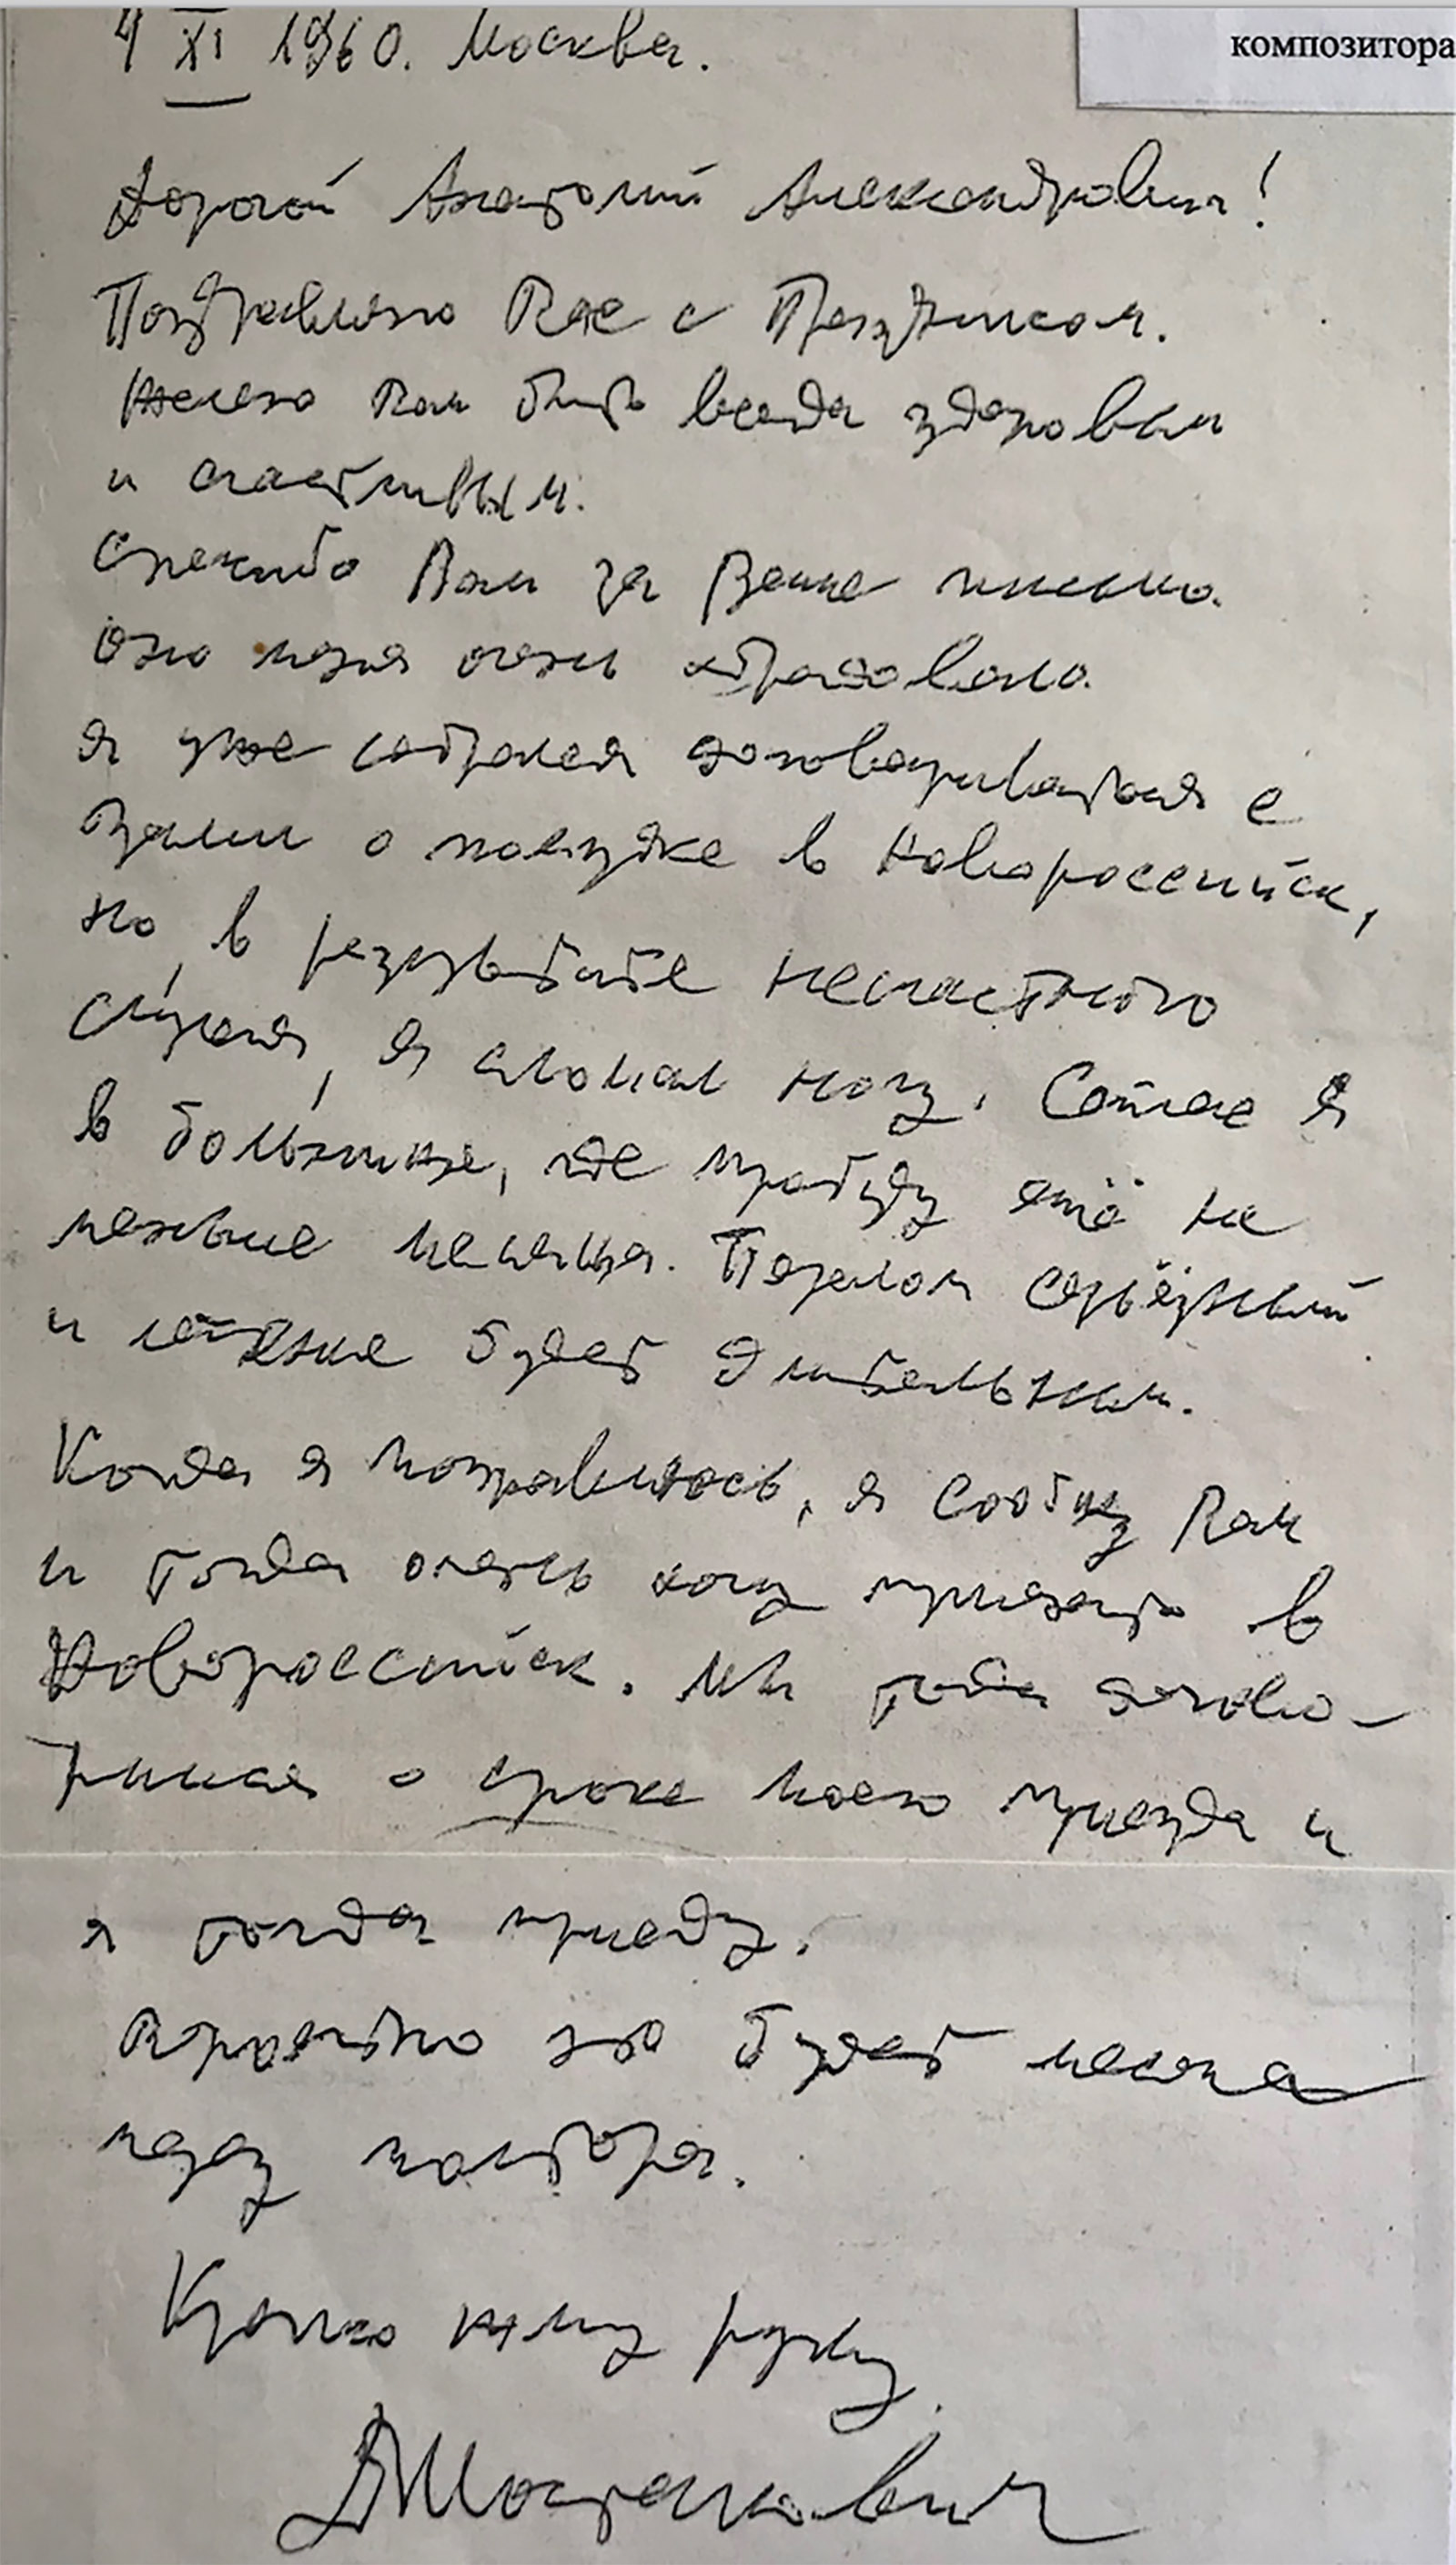 4 XI 1960. Москва.
композитора
Дорогой Анатолий Александрович!
Поздравляю Вас с Праздником.
Желаю Вам быть всегда здоровым
и счастливым.
Спасибо Вам за Ваше письмо.
Оно меня очень обрадовало.
Я уже собрался договариваться с
Вами о поездке в Новороссийск,
но, в результате несчастного
случая, я сломал ногу. Сейчас я
в больнице, где пробуду ещё не
меньше месяца. Перелом серьёзный
и лечение будет длительным.
Когда я поправлюсь, я сообщу Вам
и тогда очень хочу приехать в
Новороссийск. Мы тогда догово-
римся о сроке моего приезда и
я тогда приеду.
Вероятно это будет месяца
через полтора.
Крепко жму руку
ДШостакович